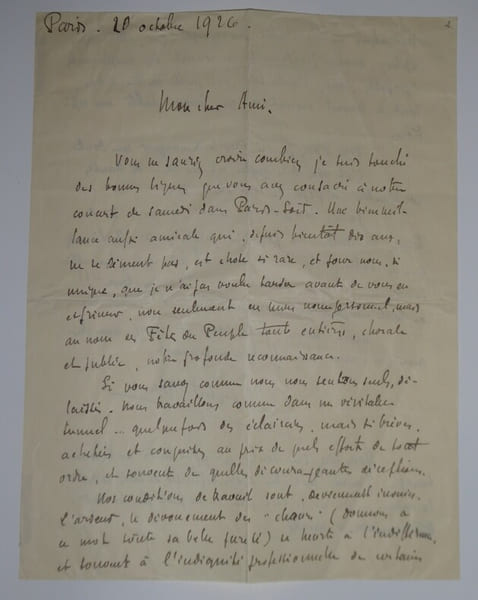 Paris. 20 octobre 1926.
Mon cher Ami.
Vous ne sauriez croire combien je suis touché
des bonnes lignes que vous avez consacré à notre
concert de samedi dans Paris-Soir. Une bienveil-
lance aussi amicale qui, depuis bientôt dix ans,
ne se dément pas, est chose si rare, et pour nous, si
unique, que je n'ai pas voulu tarder avant de vous en
exprimer, non seulement en mon nom personnel, mais
au nom des Fêtes du Peuple toute entières, chorale
et public, notre profonde reconnaissance.
Si vous savez comme nous nous sentons seuls, dé-
laissés. Nous travaillons comme dans un véritable
tunnel... quelquefois des éclaircies, mais si brèves,
achetées et conquises au prix de quels efforts de tout
ordre, et souvent de quelles décourageantes déceptions.
Nos conditions de travail sont, deviennent inouïes.
L'ardeur, le dévouement des "chœurs" (donnons à
ce mot toute sa belle pureté) se heurte à l'indifférence,
et souvent à l'indignité professionnelle de certains